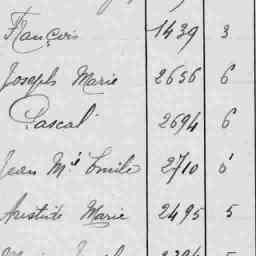 François 1439 3
Joseph Marie 2656 6
Pascal 2694 6
Jean Mie Emile 2710 6
Aristide Marie 2495 5